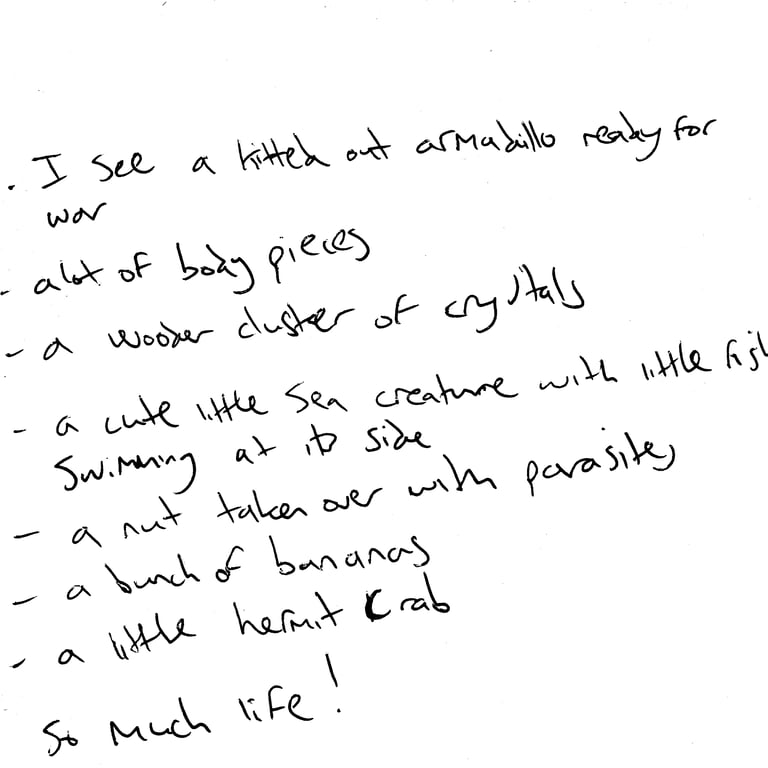 . I see a kitted out armadillo ready for
war
- alot of body pieces
- a wooden cluster of crystals
- a cute little sea creature with little fish
swimming at its side
- a nut taken over with parasites
- a bunch of bananas
- a little hermit crab
So much life!